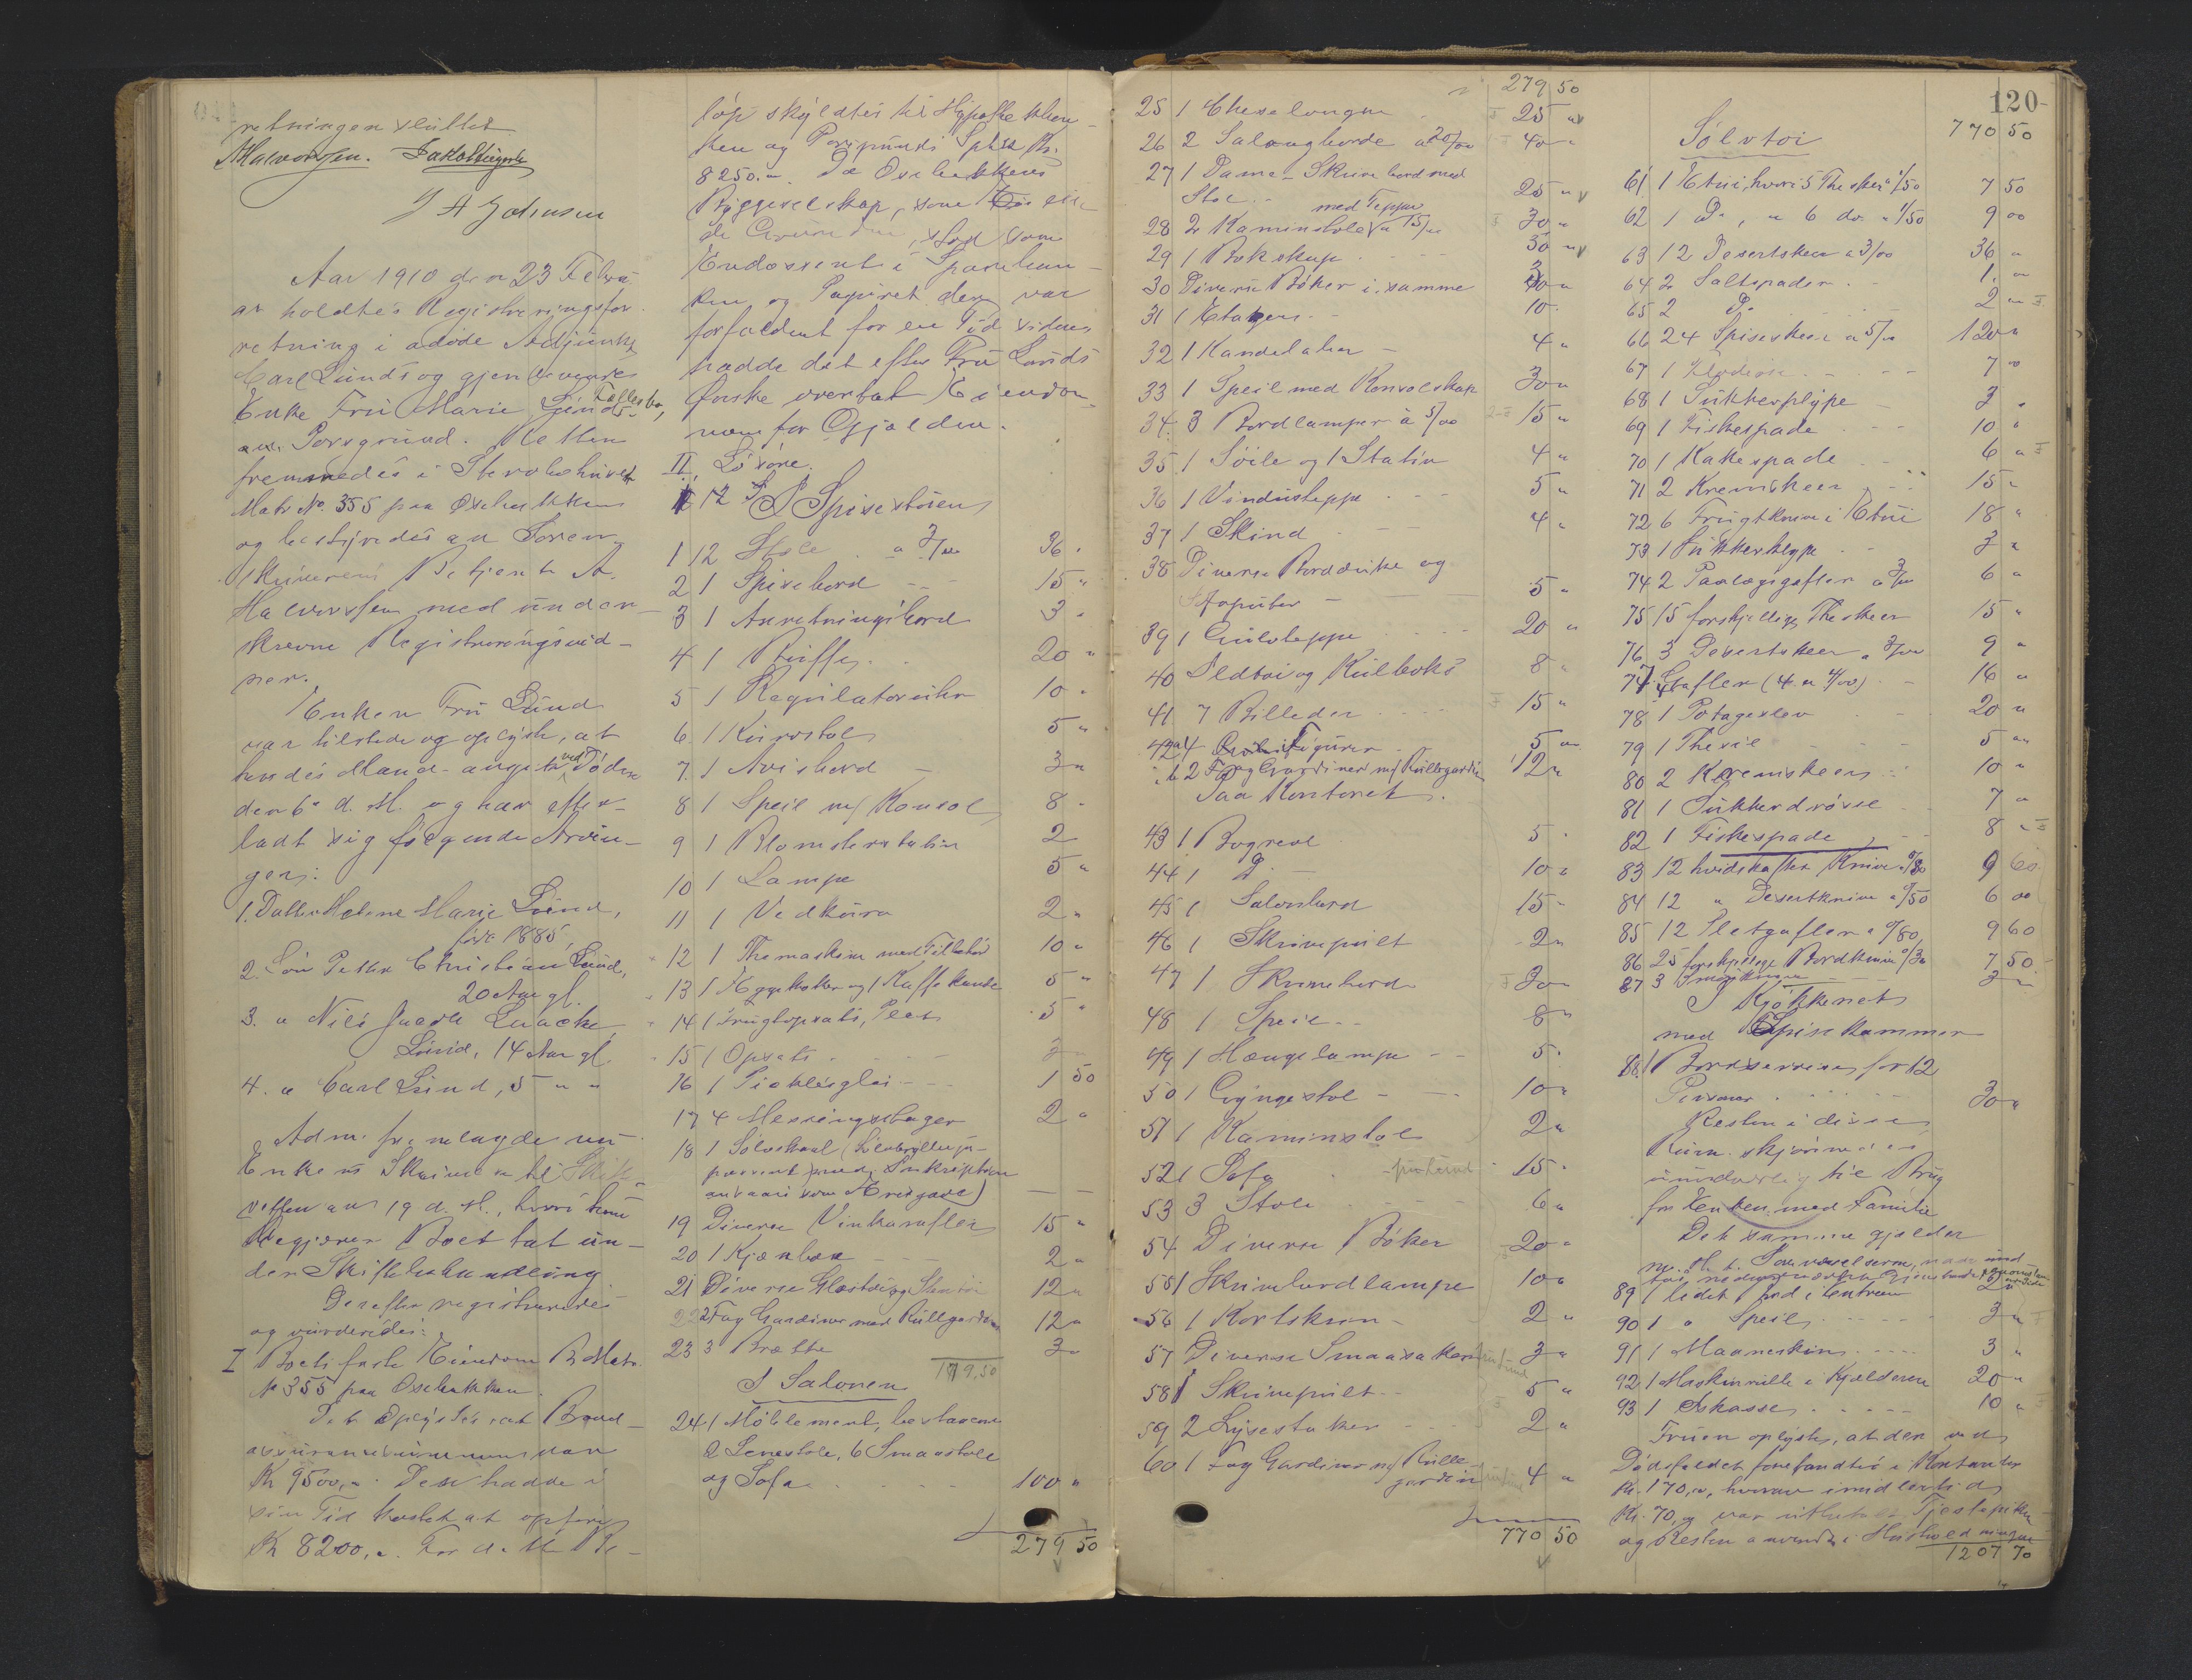 retningen sluttet.
Halvorsen. Jakobsen
J A Johnsen
Aar 1910 den 23 Februar
ar holdtes Registreringsfor-
retning i adøde Adjunkt
Carl Lunds og gjenlevende
Enke Fru Marie Lunds Fællesbo,
av Porsgrund. Retten
fremmedes i Stervbohuset
Matr No. 355 paa Osebakken
og bestyredes av Soren-
skriverens Betjent A.
Halvorsen med under-
skrevne Registreringsvid-
ner.
Enken Fru Lund
var tilstede og oplyste, at
hendes Mand avgik ved Døden
den 6te d. M. og har efter-
ladt sig følgende Arvin-
ger:
1. Datter Helene Marie Lund,
født 1885,
2. Søn Petter Christian Lund,
20 Aar gl.
3. " Nils Lund, 14 Aar gl.
4. " Carl Lund, 5 " "
Adm. fremlagde nu
Enkens Skrivelse til Skifte-
retten av 19 d. M., hvori hun
begjærer Boet tat un-
der Skiftebehandling.
Derefter registreredes
og vurderedes:
I Boets faste Eiendom B Matr.
No 355 paa Osebakken.
Det oplystes at Brand-
assurancesummen var
Kr 9500,". Den hadde i
sin Tid kostet at opføre
Kr 8200,". For dette Be-
løp skyldtes til Hypothekban-
ken og Porsgrunds Spbk Kr.
8250.". Da Osebakkens
Byggeselskap, som
stod som
Endossent i Sparebanken
og Papiret der var
forfaldent for en Tid siden
hadde det efter Fru Lunds
Ønske overtat Eiendom-
men for Gjælden.
II Løsøre.
I Spisestuen
1 12 Stole a 3/00 36 "
2 1 Spisebord 15 "
3 1 Anretningsbord 3 "
4 1 Buffet 20 "
5 1 Regulatoruhr 10 "
6 1 Kurvstol 5 "
7 1 Avisbord 3 "
8 1 Speil m/ Konsol 8 "
9 1 Blomsterstativ 2
10 1 Lampe 5 "
11 1 Vedkurv 2 "
12 1 Themaskine med Tilbehør 10 "
13 1 Eggekoker og 1 Kaffekande 5 "
14 1 Frugtopsats, Plet 5 "
15 1 Opsats 3
16 1 Picklesglas 1 50
17 4 Messingstager 2 "
18 1 Sølvskaal (Sølvbryllups-
præsent med Inskription
ansaaes som Æresgave) — —
19 Diverse Vinkarafler 15 "
20 1 Kjørebox 2 "
21 Diverse Glastøi og Stentøi 12 "
22 2 Fag Gardiner med Rullgardin 12 "
23 3 Brætte 3 "
179,50
I Salonen
24 1 Møblement, bestaaende
2 Lenestole, 6 Smaastole
og Sofa 100 "
279 50
279 50
25 1 Cheselongue 25 "
26 2 Salongborde a 20/00 40 "
27 1 Dame-Skrivebord med
Stol 25 "
28 2 Kaminstole med Teppe a 15/00 30 "
29 1 Bokskap 30 "
30 Diverse Bøker i samme 30 "
31 1 Etagere 10 "
32 1 Kandelaber 4 "
33 1 Speil med Konsolskap 30 "
34 3 Bordlamper à 5/00 15 "
35 1 Søile og 1 Stativ 4 "
36 1 Vindusteppe 5 "
37 1 Skind 4 "
38 Diverse Bordduke og
Sofaputer 5 "
39 1 Gulvteppe 20 "
40 Ildtøi og Kulboks 8 "
41 7 Billeder 15 "
42 a 4 Figurer 5 "
b 2 Fag Gardiner m/ Rullegardin 12 "
Paa Kontoret.
43 1 Bogreol 5 "
44 1 Do 10 "
45 1 Salonbord 15 "
46 1 Skrivepult 2 "
47 1 Skrivebord 30 "
48 1 Speil 8 "
49 1 Hængelampe 5 "
50 1 Gyngestol 10 "
51 1 Kaminstol 2 "
52 1 Sofa 15 "
53 3 Stole 6 "
54 Diverse Bøker 20 "
55 1 Skrivebordlampe 10 "
56 1 Kortskrin 2 "
57 Diverse Smaasaker 3 "
58 1 Skrivepult 5 "
59 2 Lysestaker 2 "
60 1 Fag Gardiner m/ Rulle-
gardin 4 "
770 50
120
770 50
Sølvtøi
61 1 Etui, hvori 5 Theskeer a 1/50 7 50
62 1 Do, " 6 do. a 1/50 9 00
63 12 Desertskeer a 3/00 36 "
64 2 Saltspader 1 "
65 2 Do 2 "
66 24 Spiseskeer a 5/00 120 "
67 1 Fløteøse 7 "
68 1 Sukkerklype 3 "
69 1 Fiskespade 10 "
70 1 Kakespade 6 "
71 2 Kremskeer 15 "
72 6 Frugtknive i Etui 18 "
73 1 Sukkerklype 3 "
74 2 Paalægsgafler a 3/00 6 "
75 15 forskjellige Theskeer 15 "
76 3 Desertskeer a 3/00 9 "
77 4 Gafler (4 a 4/00) 16 "
78 1 Potageslev 20 "
79 1 Thesil 5 "
80 2 Kremskeer 10 "
81 1 Sukkerdrøsse 7 "
82 1 Fiskespade 8 "
83 12 hvidskaftet Knive a 0/80 9 60
84 12 " Desertknive a 0/50 6 00
85 12 Pletgafler a 0/80 9 60
86 25 forskjellige Bordknive a 0/30 7 50
87 3 3 "
I Kjøkkenet
med Spisekammer
88 1 Bordservise for 12
Personer 30 "
Resten i disse
Rum skjønnedes
uundværlig til Brug
for Enken med Familie
Det samme gjælder
m. H. t. Soveværelserne,
89 1 lidet Bord i Entreen 2 "
90 1 " Speil 3 "
91 1 Maaneskin 3 "
92 1 Maskinrulle i Kjælderen 20 "
93 1 Iskasse 10 "
Fruen oplyste, at der ved
Dødsfaldet forefandtes i Kontanter
Kr. 170,", hvorav imidlertid
Kr. 70," var utbetalt Tjenstepiken
og Resten anvendt i Husholdningen
1207 70